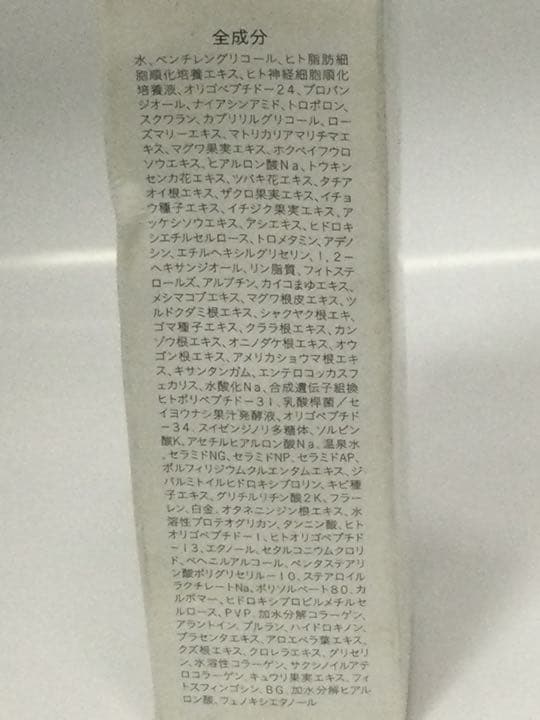 全成分
水、ペンチレングリコール、ヒト脂肪細
胞順化培養エキス、ヒト神経細胞順化
培養液、オリゴペプチドー24、プロパン
ジオール、ナイアシンアミド、トロポロン、
スクワラン、カプリリルグリコール、ロー
ズマリーエキス、マトリカリアマリチマエ
キス、マグワ果実エキス、ホクベイフウロ
ソウエキス、ヒアルロン酸Na、トウキン
センカ花エキス、ツバキ花エキス、タチア
オイ根エキス、ザクロ果実エキス、イチョ
ウ種子エキス、イチジク果実エキス、ア
ッケシソウエキス、アシエキス、ヒドロキ
シエチルセルロース、トロメタミン、アデノ
シン、エチルヘキシルグリセリン、1、2ー
ヘキサンジオール、リン脂質、フィトステ
ロールズ、アルブチン、カイコまゆエキス、
メシマコブエキス、マグワ根皮エキス、ツ
ルドクダミ根エキス、シャクヤク根エキ、
ゴマ種子エキス、クララ根エキス、カン
ゾウ根エキス、オニノダケ根エキス、オウ
ゴン根エキス、アメリカショウマ根エキ
ス、キサンタンガム、エンテロコッカスフ
ェカリス、水酸化Na、合成遺伝子組換
ヒトポリペプチドー31、乳酸桿菌／セ
イヨウナシ果汁発酵液、オリゴペプチド
ー34、スイゼンジノリ多糖体、ソルビン
酸K、アセチルヒアルロン酸Na、温泉水
、セラミドNG、セラミドNP、セラミドAP、
ポルフィリジウムクルエンタムエキス、ジ
パルミトイルヒドロキシプロリン、キビ種
子エキス、グリチルリチン酸2K、フラー
レン、白金、オタネニンジン根エキス、水
溶性プロテオグリカン、タンニン酸、ヒト
オリゴペプチドー1、ヒトオリゴペプチド
ー13、エタノール、セタルコニウムクロリ
ド、ベヘニルアルコール、ペンタステアリ
ン酸ポリグリセリルー10、ステアロイル
ラクチレートNa、ポリソルベート80、カ
ルボマー、ヒドロキシプロピルメチルセ
ルロース、PVP、加水分解コラーゲン、
アラントイン、プルラン、ハイドロキノン、
プラセンタエキス、アロエベラ葉エキス、
クズ根エキス、クロレラエキス、グリセリ
ン、水溶性コラーゲン、サクシノイルアテ
ロコラーゲン、キュウリ果実エキス、フィ
トスフィンゴシン、BG、加水分解ヒアル
ロン酸、フェノキシエタノール